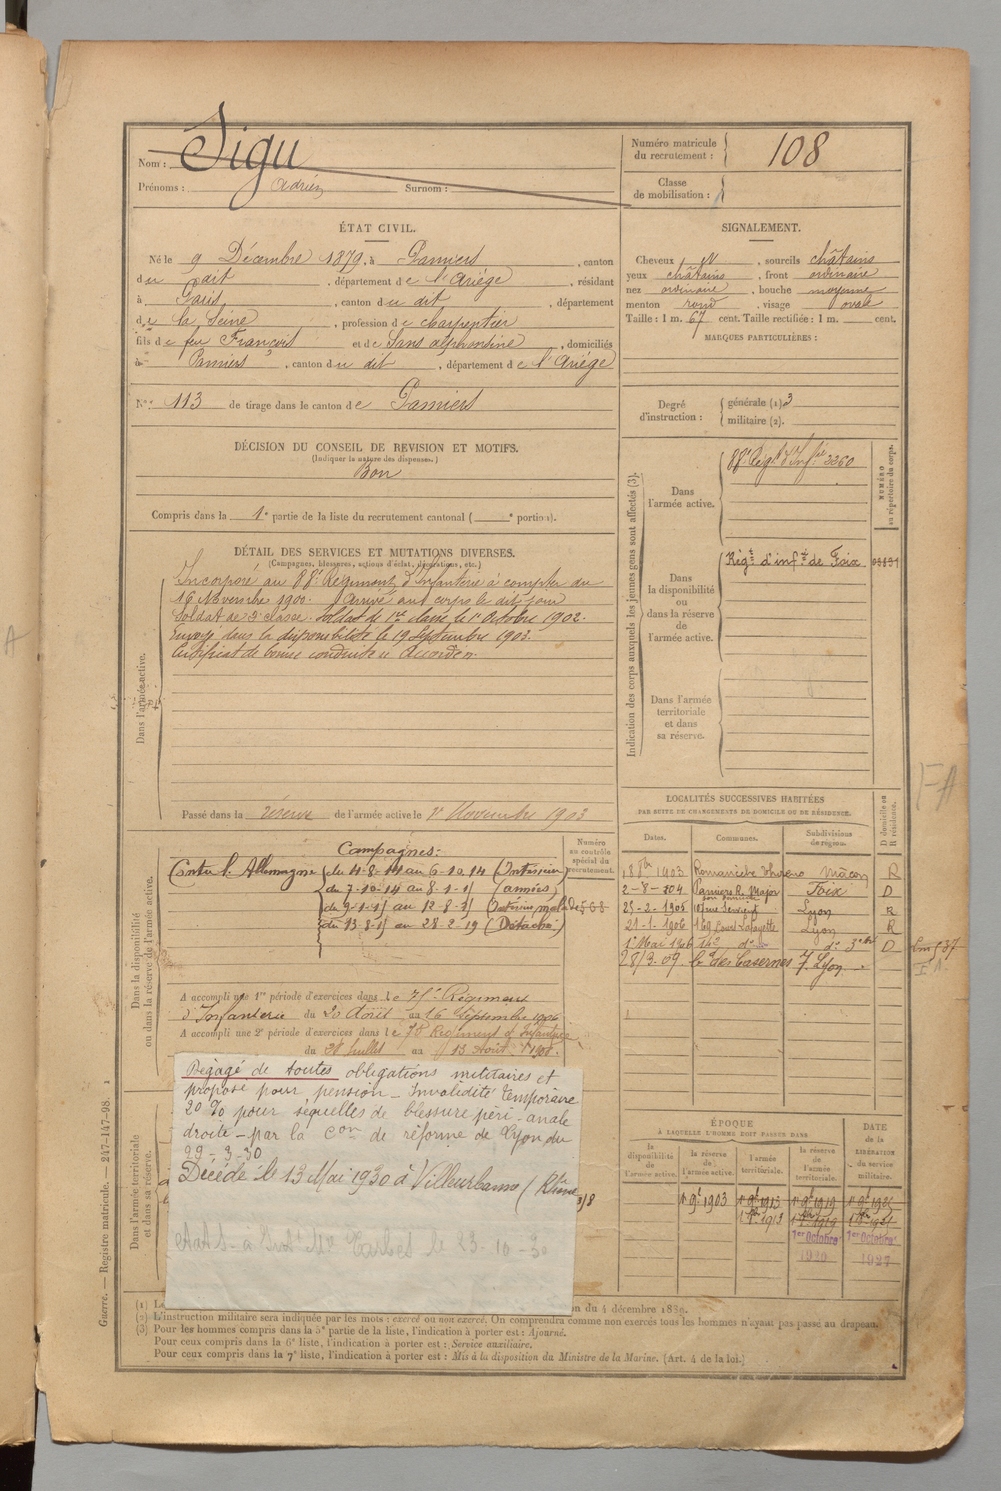 Nom : Sigu
Prénoms : Adrien Surnom :
Numéro matricule du recrutement : 108
Classe de mobilisation :
ÉTAT CIVIL.
Né le 9 Décembre 1879, à Pamiers , canton
du dit , département de l'Ariège , résidant
à Paris , canton du dit , département
de la Seine , profession de charpentier
fils de feu François et de Sans Alphonsine , domiciliés
à Pamiers , canton du dit , département de l'Ariège
N° 113 de tirage dans le canton de Pamiers
SIGNALEMENT.
Cheveux , sourcils châtains
yeux châtains , front ordinaire
nez ordinaire , bouche moyenne
menton rond , visage ovale
Taille : 1 m. 67 cent. Taille rectifiée : 1 m. cent.
MARQUES PARTICULIÈRES :
Degré d'instruction : générale (1) 3
militaire (2).
DÉCISION DU CONSEIL DE REVISION ET MOTIFS.
(Indiquer la nature des dispenses.)
Bon
Compris dans la 1e partie de la liste du recrutement cantonal ( e portion).
DÉTAIL DES SERVICES ET MUTATIONS DIVERSES.
(Campagnes, blessures, actions d'éclat, décorations, etc.)
Dans l'armée active.
Incorporé au 88e Régiment d'Infanterie à compter du
16 Novembre 1900. Arrivé aut corps le dit jour
Soldat de 2e classe. Soldat de 1re classe le 1er Octobre 1902.
Envoyé dans la disponibilité le 19 Septembre 1903.
Certificat de bonne conduite "Accordé".
Passé dans la réserve de l'armée active le 1er Novembre 1903
Indication des corps auxquels les jeunes gens sont affectés (3).
NUMÉRO au répertoire du corps.
Dans l'armée active.
88e Régt d'Infie 2260
Dans la disponibilité ou dans la réserve de l'armée active.
Régt d'infie de Foix
Dans l'armée territoriale et dans sa réserve.
Dans la disponibilité ou dans la réserve de l'armée active.
Numéro au contrôle spécial du recrutement.
Campagnes :
Contre l'Allemagne du 4-8-14 au 6-10-14 (Intérieur)
du 7-10-14 au 8-1-1 (armées)
du 9-1-1 au 12-8-1 (Intérieur malade)
du 13-8-1 au 28-2-19 (Détaché)
A accompli une 1re période d'exercices dans le Régiment
d'Infanterie du 20 Août au 16 Septembre 1906
A accompli une 2e période d'exercices dans le Régiment d'Infanterie
du 28 Juillet au 13 Août 1908.
LOCALITÉS SUCCESSIVES HABITÉES
PAR SUITE DE CHANGEMENTS DE DOMICILE OU DE RÉSIDENCE.
D domicile ou R résidence.
Dates. Communes. Subdivisions de région.
1903 Romanèche Mâcon R
2-8-904 Pamiers R. Major Foix D
25-2-1905 Lyon R
21-1-1906 169 Cours Lafayette Lyon R
1er Mai 1906 do do D
28/3.09 des Casernes 7. Lyon
FA
Dans l'armée territoriale et dans sa réserve.
Dégagé de toutes obligations militaires et
proposé pour pension - Invalidité temporaire
20 % pour séquelles de blessure péri-anale
droite - par la Con de réforme de Lyon du
29-3-30
Décédé le 13 Mai 1930 à Villeurbanne (Rhône)
Tarbes le 23-10-30
ÉPOQUE
À LAQUELLE L'HOMME DOIT PASSER DANS
DATE de la LIBÉRATION du service militaire.
la disponibilité de l'armée active. la réserve de l'armée active. l'armée territoriale. la réserve de l'armée territoriale.
1er 9bre 1903 1er 9bre 1913 1er 9bre 1919 1er 9bre 1925
1er Octobre 1er Octobre
1920 1927
on du 4 décembre 1889.
(2) L'instruction militaire sera indiquée par les mots : exercé ou non exercé. On comprendra comme non exercés tous les hommes n'ayant pas passé au drapeau.
(3) Pour les hommes compris dans la 5e partie de la liste, l'indication à porter est : Ajourné.
Pour ceux compris dans la 6e liste, l'indication à porter est : Service auxiliaire.
Pour ceux compris dans la 7e liste, l'indication à porter est : Mis à la disposition du Ministre de la Marine. (Art. 4 de la loi.)
Guerre. — Registre matricule. — 247-147-98.